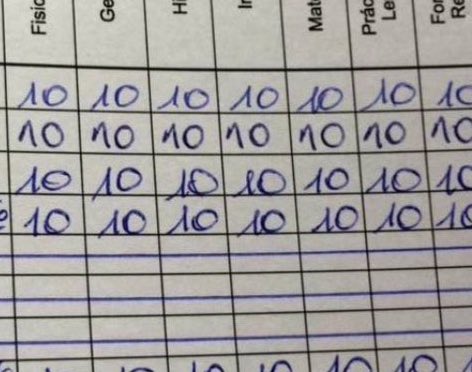 Físic Ge Hi In Mat Prác Le For Re
10 10 10 10 10 10 10
10 10 10 10 10 10 10
10 10 10 10 10 10 10
10 10 10 10 10 10 10
10 10 10 10 10